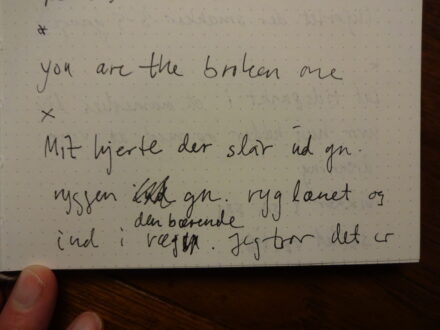 *
you are the broken one
x
Mit hjerte der slår ud gn.
ryggen gn. ryglænet og
den bærende
ind i væg. Jeg tror det er